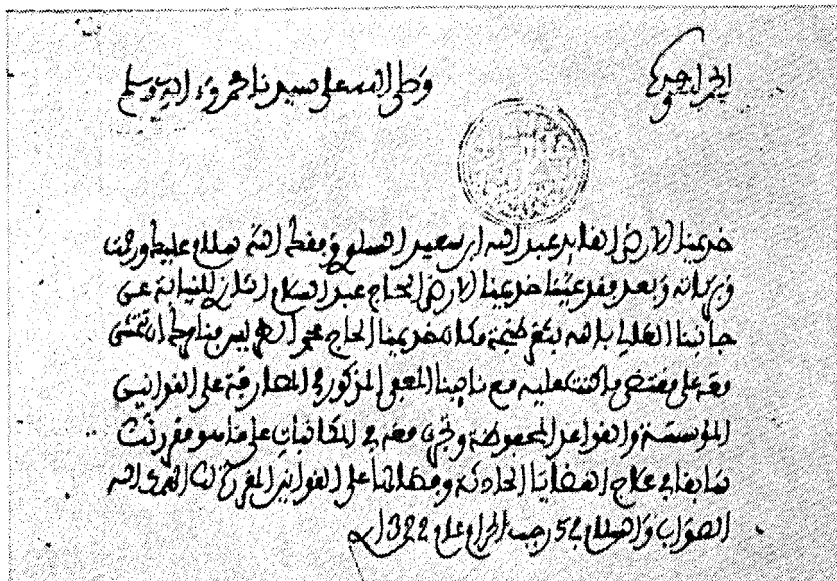 الحمد لله وحده وصلى الله على سيدنا محمد وءاله وسلم
خديمنا الارضى القايد عبد الله ابن سعيد السلوي وفقك الله وسلام عليك ورحمت
الله وبركاته وبعد فقد عيننا خديمنا الارضى الحاج عبد السلام التازي للنيابة عن
جانبنا العالي بالله بثغر طنجة مكان خديمنا الحاج محمد الطريس فنامرك ان تتمشى
معه على مقتضى ما كنت عليه مع نائبنا المعفى المذكور في المصارفة على القوانين
المؤسسة والقواعد المحفوظة وتجري معه في المكاتبات على ما هو مقرر لك
سابقا في علاج القضايا الحادثة وفصالها على القوانين المقررة لك الهمك الله
الصواب والسلام في 5 رجب الحرام عام 1322